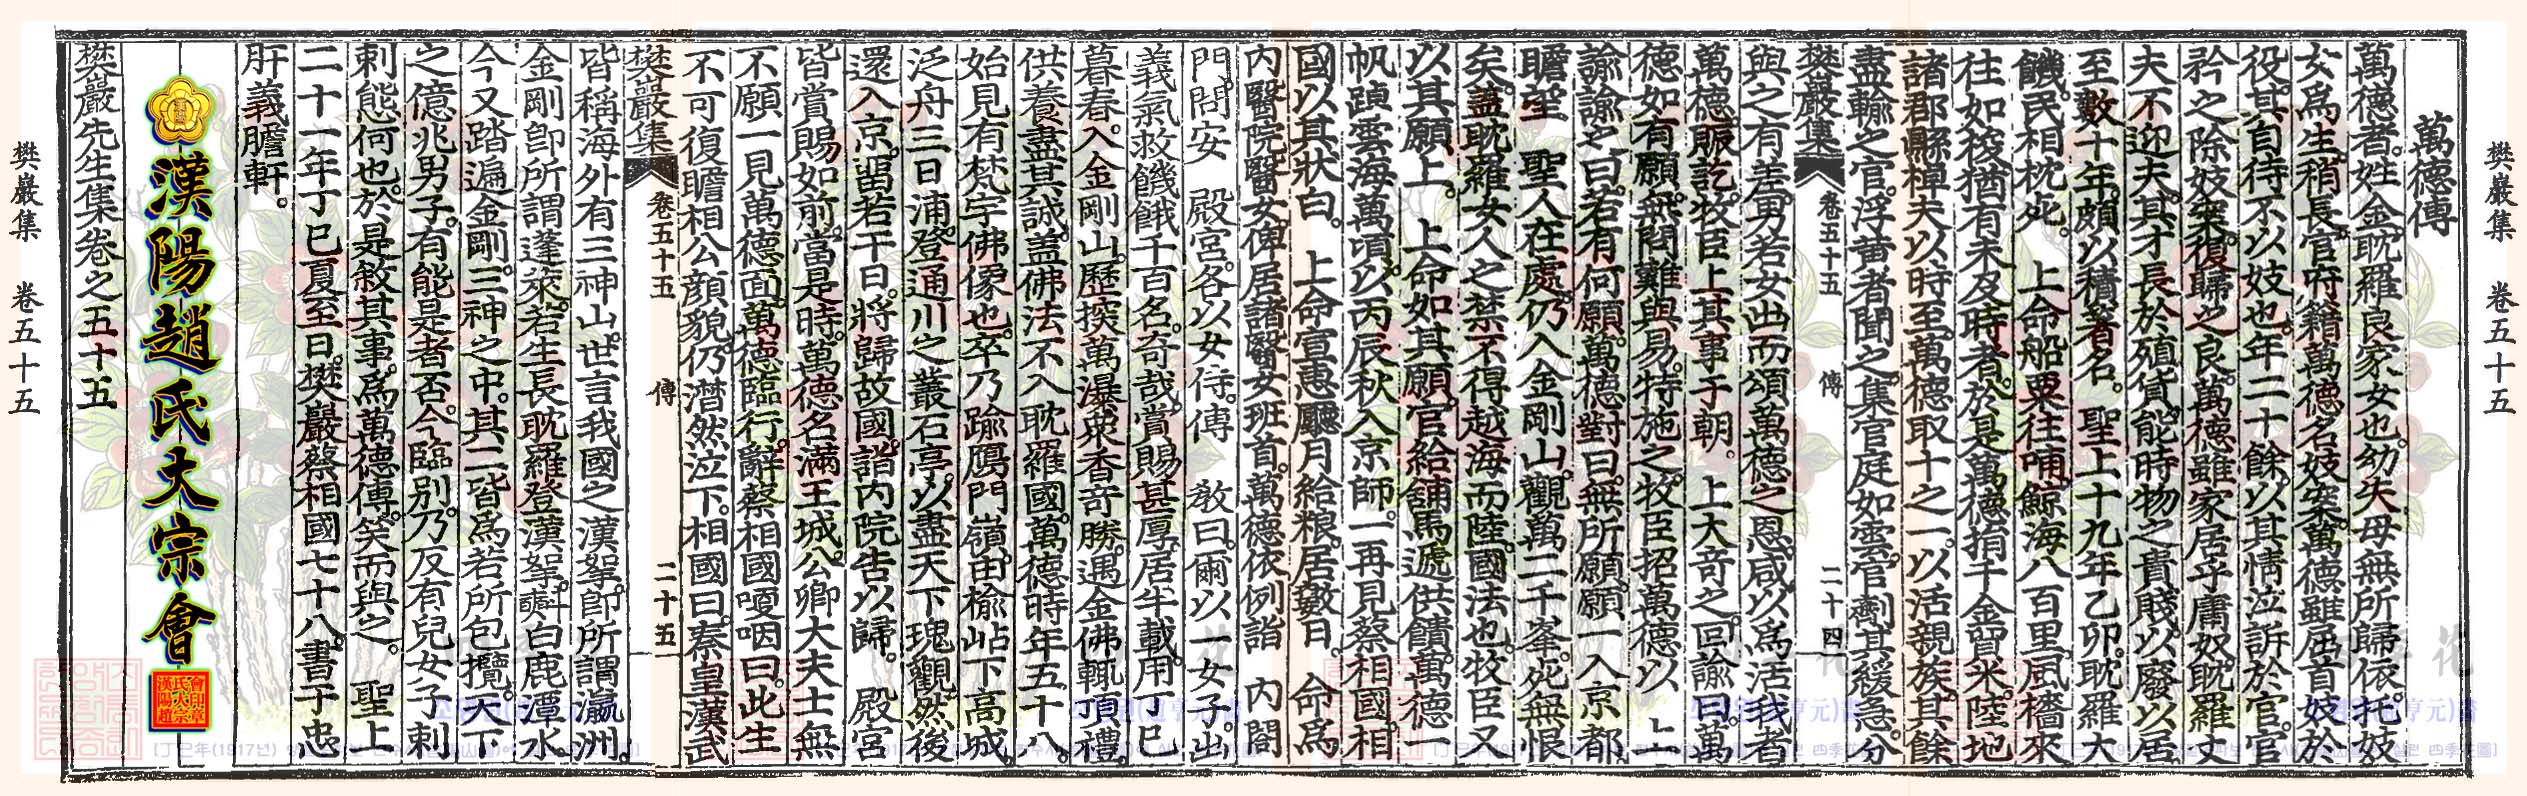 樊巖集 卷五十五
萬德傳
萬德者。姓金。耽羅良家女也。幼失母無所歸依。托妓
女爲生。稍長。官府籍萬德名妓案。萬德雖屈首妓於
役。其自待不以妓也。年二十餘。以其情泣訴於官。官
矜之。除妓案。復歸之良。萬德雖家居乎庸奴。耽羅丈
夫不迎夫。其才長於殖貨。能時物之貴賤。以廢以居。
至數十年。頗以積著名。 聖上十九年乙卯。耽羅大
饑。民相枕死。 上命船粟往哺。鯨海八百里。風檣來
往如梭。猶有未及時者。於是萬德捐千金貿米。陸地
諸郡縣棹夫以時至。萬德取十之一。以活親族。其餘
盡輸之官。浮黃者聞之。集官庭如雲。官劑其緩急。分
樊巖集 卷五十五 傳 二十四
與之有差。男若女出而頌萬德之恩。咸以爲活我者
萬德。賑訖。牧臣上其事于朝。 上大奇之。回諭曰。萬
德如有願。無問難與易。特施之。牧臣招萬德以 上
諭諭之曰。若有何願。萬德對曰。無所願。願一入京都。
瞻望 聖人在處。仍入金剛山。觀萬二千峯。死無恨
矣。盖耽羅女人之禁不得越海而陸。國法也。牧臣又
以其願上。 上命如其願。官給舖馬。遞供饋。萬德一
帆踔雲海萬頃。以丙辰秋入京師。一再見蔡相國。相
國以其狀白。 上命宣惠廳月給粮。居數日。 命爲
內醫院醫女。俾居諸醫女班首。萬德依例詣 內閤
門。問安 殿宮。各以女侍。傳 敎曰。爾以一女子。出
義氣救饑餓千百名。奇哉。賞賜甚厚。居半載。用丁巳
暮春。入金剛山。歷探萬瀑衆香奇勝。遇金佛輒頂禮。
供養盡其誠。盖佛法不入耽羅國。萬德時年五十八。
始見有梵宇佛像也。卒乃踰鴈門嶺。由楡岾下高城。
泛舟三日浦。登通川之叢石亭。以盡天下瑰觀。然後
還入京。留若干日。將歸故國。詣內院告以歸。 殿宮
皆賞賜如前。當是時。萬德名滿王城。公卿大夫士無
不願一見萬德面。萬德臨行。辭蔡相國哽咽曰。此生
不可復瞻相公顔貌。仍潸然泣下。相國曰。秦皇漢武
樊巖集 卷五十五 傳 二十五
皆稱海外有三神山。世言我國之漢挐。卽所謂瀛洲。
金剛卽所謂蓬萊。若生長耽羅。登漢挐。㪺白鹿潭水。
今又踏遍金剛。三神之中。其二皆爲若所包攬。天下
之億兆男子。有能是者否。今臨別。乃反有兒女子刺
刺態何也。於是敍其事。爲萬德傳。笑而與之。 聖上
二十一年丁巳夏至日。樊巖蔡相國七十八。書于忠
肝義膽軒。
漢陽趙氏大宗會
樊巖先生集卷之五十五
樊巖集 卷五十五